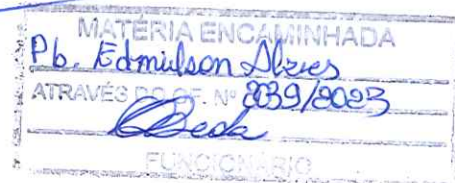 MATÉRIA ENCAMINHADA
Pb. Edmilson Alves
ATRAVÉS DO OF. Nº 2039/2023
FUNCIONÁRIO